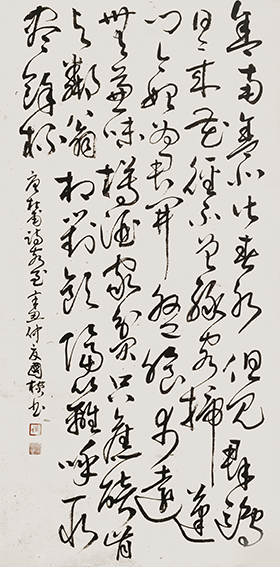 舍南舍北皆春水但見群鷗
日日来花徑不曾緣客掃蓬
門今始為君開盤飧市遠
無兼味樽酒家貧只舊醅肯
與鄰翁相對飲隔籬呼取
盡餘杯
唐杜甫詩客至 辛丑 國 书